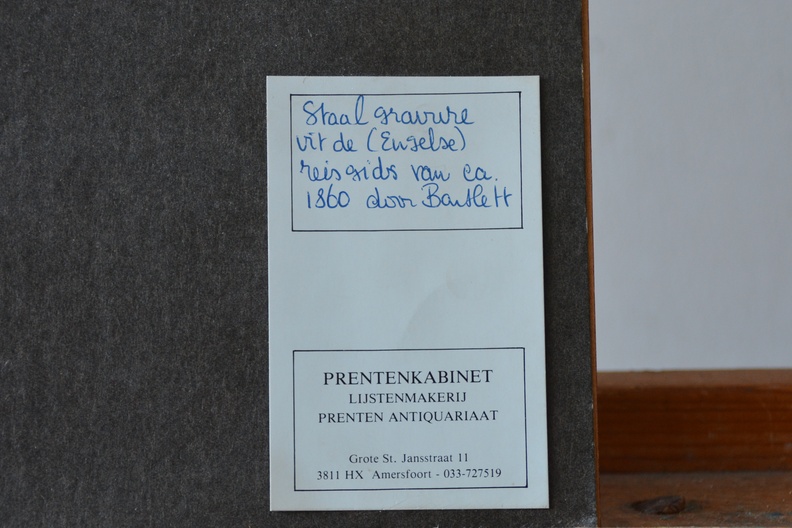 Staalgravure
uit de (Engelse)
reisgids van ca.
1860 door Bartlett
PRENTENKABINET
LIJSTENMAKERIJ
PRENTEN ANTIQUARIAAT
Grote St. Jansstraat 11
3811 HX Amersfoort - 033-727519